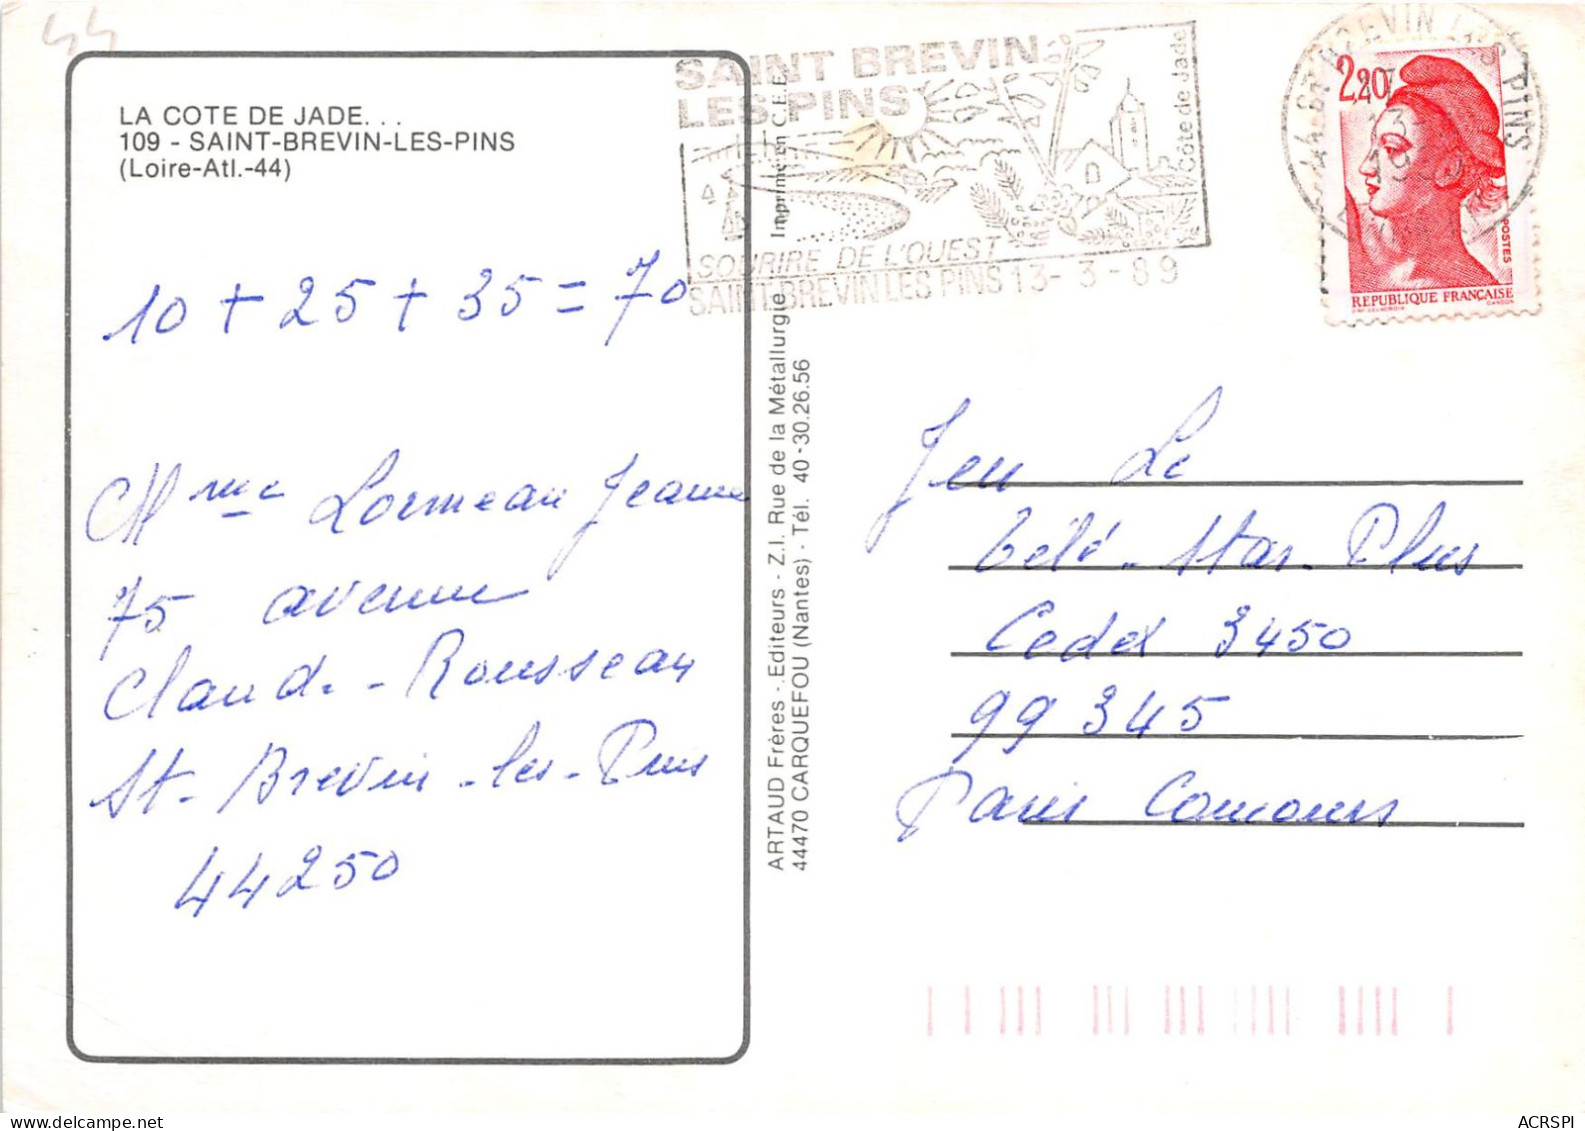 44
LA COTE DE JADE...
109 - SAINT-BREVIN-LES-PINS
(Loire-Atl.-44)
10 + 25 + 35 = 70
Mme Lormeau Jeanne
75 avenue
Claude-Rousseau
St-Brevin-les-Pins
44250
SAINT BREVIN
LES PINS
Côte de Jade
SOURIRE DE L'OUEST
SAINT-BREVIN LES PINS 13-3-89
44 ST BREVIN LES PINS
2,20
POSTES
REPUBLIQUE FRANÇAISE
Imprimé en C.E.E.
ARTAUD Frères - Editeurs - Z.I. Rue de la Métallurgie
44470 CARQUEFOU (Nantes) - Tél. 40-30.26.56
Jeu Le
télé-Star-Plus
Cedex 3450
99 345
Paris Concours
ACRSPI